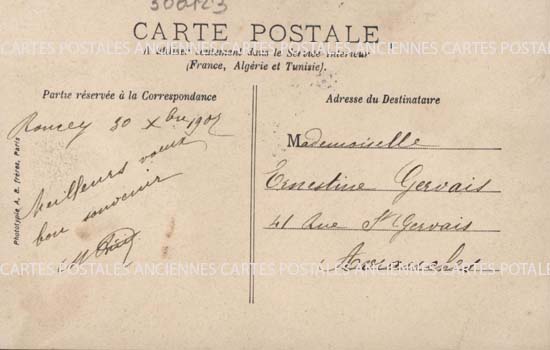 300123
CARTE POSTALE
CARTES POSTALES ANCIENNES CARTES POSTALES ANCIENNES CARTES POSTALES
A utiliser seulement dans le Service Intérieur
(France, Algérie et Tunisie).
Partie réservée à la Correspondance
Roncey 30 Xbre 1902
Meilleurs vœux
bon souvenir
Phototypie A. B. frères, Paris
Adresse du Destinataire
Mademoiselle
Ernestine Gervais
41 Rue St Gervais
Avranches
CARTES POSTALES ANCIENNES CARTES POSTALES ANCIENNES CARTES POSTALES